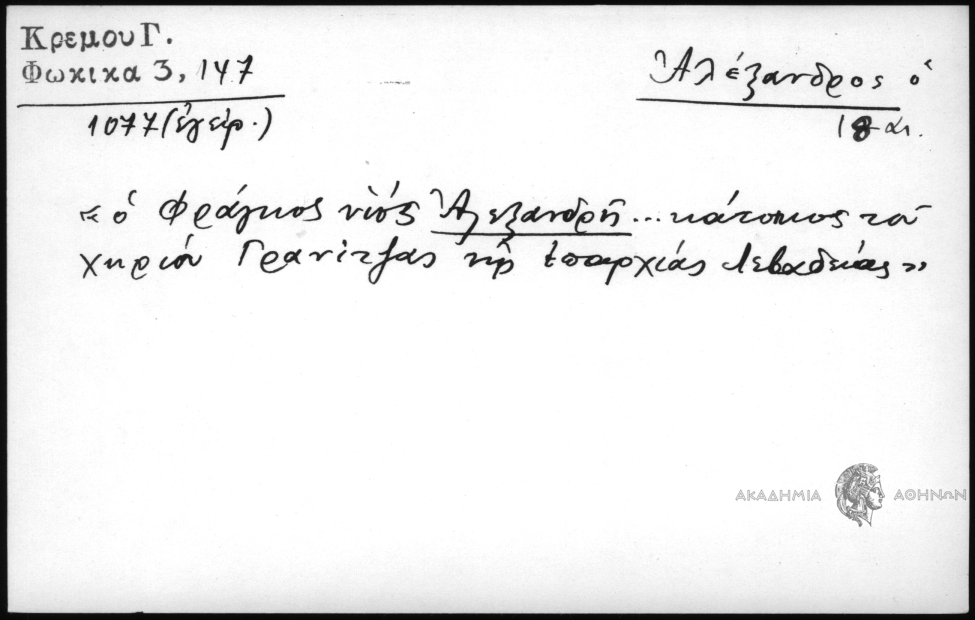 Κρεμου Γ.
Φωκικα 3, 147
1077 (ἐγείρ.)
Ἀλέξανδρος ὁ
18 αι.
« ὁ Φράγκος υἱὸς Ἀλεξανδρῆ ... κάτοικος τοῦ
χωρίου Γρανίτζας τῆς ἐπαρχίας Λεβαδείας »
ΑΚΑΔΗΜΙΑ ΑΘΗΝΩΝ